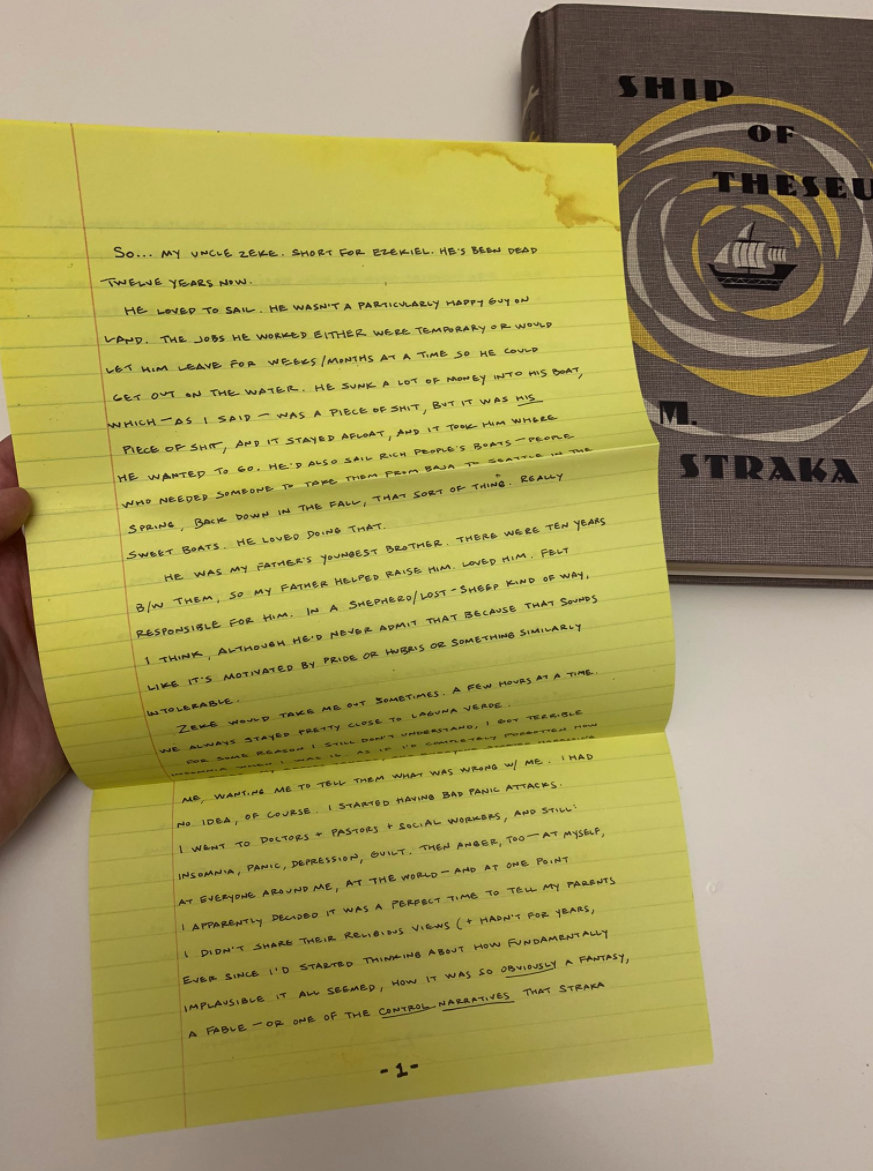 So... MY UNCLE ZEKE. SHORT FOR EZEKIEL. HE'S BEEN DEAD
TWELVE YEARS NOW.
HE LOVED TO SAIL. HE WASN'T A PARTICULARLY HAPPY GUY ON
LAND. THE JOBS HE WORKED EITHER WERE TEMPORARY OR WOULD
LET HIM LEAVE FOR WEEKS/MONTHS AT A TIME SO HE COULD
GET OUT ON THE WATER. HE SUNK A LOT OF MONEY INTO HIS BOAT,
WHICH - AS I SAID - WAS A PIECE OF SHIT, BUT IT WAS HIS
PIECE OF SHIT, AND IT STAYED AFLOAT, AND IT TOOK HIM WHERE
HE WANTED TO GO. HE'D ALSO SAIL RICH PEOPLE'S BOATS - PEOPLE
WHO NEEDED SOMEONE TO TAKE THEM FROM BAJA TO SEATTLE IN THE
SPRING, BACK DOWN IN THE FALL, THAT SORT OF THING. REALLY
SWEET BOATS. HE LOVED DOING THAT.
HE WAS MY FATHER'S YOUNGEST BROTHER. THERE WERE TEN YEARS
B/W THEM, SO MY FATHER HELPED RAISE HIM. LOVED HIM. FELT
RESPONSIBLE FOR HIM. IN A SHEPHERD/LOST-SHEEP KIND OF WAY,
I THINK, ALTHOUGH HE'D NEVER ADMIT THAT BECAUSE THAT SOUNDS
LIKE IT'S MOTIVATED BY PRIDE OR HUBRIS OR SOMETHING SIMILARLY
INTOLERABLE.
ZEKE WOULD TAKE ME OUT SOMETIMES. A FEW HOURS AT A TIME.
WE ALWAYS STAYED PRETTY CLOSE TO LAGUNA VERDE.
FOR SOME REASON I STILL DON'T UNDERSTAND, I GOT TERRIBLE
INSOMNIA WHEN I WAS 16. AS IF I'D COMPLETELY FORGOTTEN HOW
ME, WANTING ME TO TELL THEM WHAT WAS WRONG W/ ME. I HAD
NO IDEA, OF COURSE. I STARTED HAVING BAD PANIC ATTACKS.
I WENT TO DOCTORS + PASTORS + SOCIAL WORKERS, AND STILL:
INSOMNIA, PANIC, DEPRESSION, GUILT. THEN ANGER, TOO - AT MYSELF,
AT EVERYONE AROUND ME, AT THE WORLD - AND AT ONE POINT
I APPARENTLY DECIDED IT WAS A PERFECT TIME TO TELL MY PARENTS
I DIDN'T SHARE THEIR RELIGIOUS VIEWS (+ HADN'T FOR YEARS,
EVER SINCE I'D STARTED THINKING ABOUT HOW FUNDAMENTALLY
IMPLAUSIBLE IT ALL SEEMED, HOW IT WAS SO OBVIOUSLY A FANTASY,
A FABLE - OR ONE OF THE CONTROL NARRATIVES THAT STRAKA
-1-
SHIP
OF
THESEU
M.
STRAKA